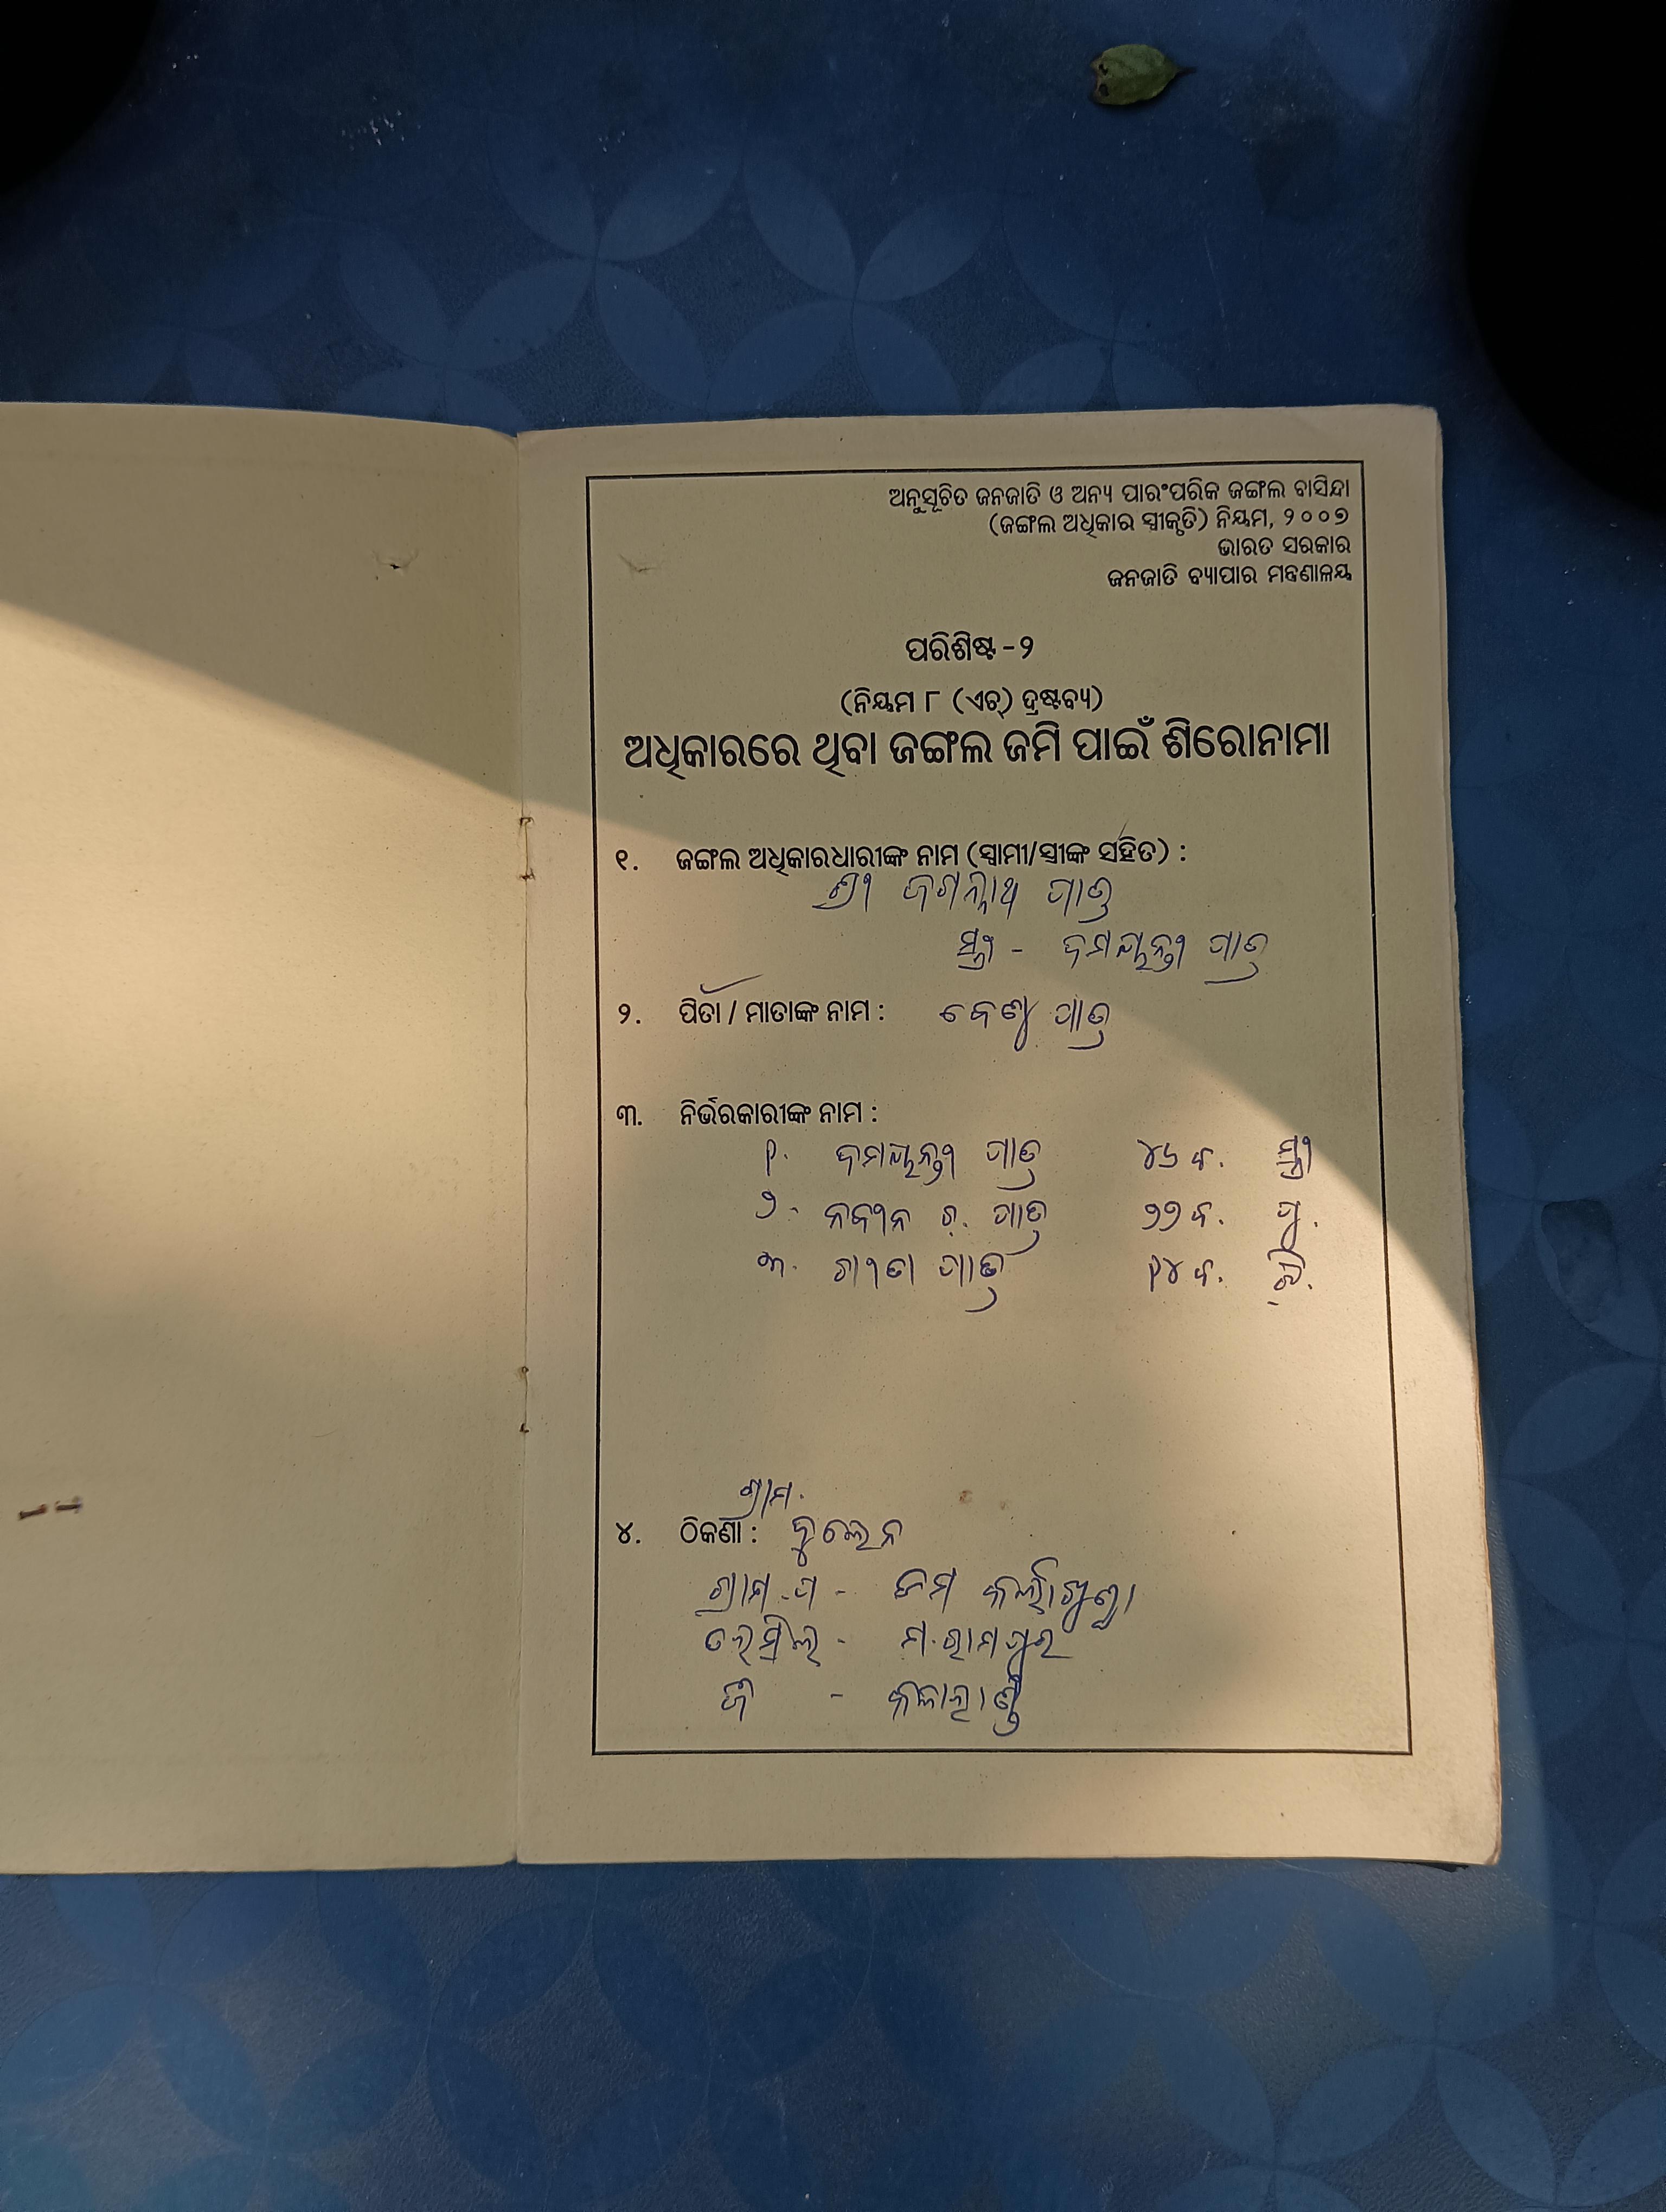 ଅନୁସୂଚିତ ଜନଜାତି ଓ ଅନ୍ୟ ପାରଂପରିକ ଜଙ୍ଗଲ ବାସିନ୍ଦା
(ଜଙ୍ଗଲ ଅଧିକାର ସ୍ୱୀକୃତି) ନିୟମ, ୨୦୦୭
ଭାରତ ସରକାର
ଜନଜାତି ବ୍ୟାପାର ମନ୍ତ୍ରଣାଳୟ
ପରିଶିଷ୍ଟ-୨
(ନିୟମ ୮ (ଏଚ୍) ଦ୍ରଷ୍ଟବ୍ୟ)
ଅଧିକାରରେ ଥିବା ଜଙ୍ଗଲ ଜମି ପାଇଁ ଶିରୋନାମା
୧. ଜଙ୍ଗଲ ଅଧିକାରଧାରୀଙ୍କ ନାମ (ସ୍ୱାମୀ/ସ୍ତ୍ରୀଙ୍କ ସହିତ) :
ଶ୍ରୀ ଜଗନ୍ନାଥ ପାତ୍ର
ସ୍ତ୍ରୀ - ଦମୟନ୍ତୀ ପାତ୍ର
୨. ପିତା / ମାତାଙ୍କ ନାମ : ବେଣୁ ପାତ୍ର
୩. ନିର୍ଭରକାରୀଙ୍କ ନାମ :
୧. ଦମୟନ୍ତୀ ପାତ୍ର ୪୬ ବ. ସ୍ତ୍ରୀ
୨. ନବୀନ ଚ. ପାତ୍ର ୨୨ ବ. ପୁ.
୩. ଗୀତା ପାତ୍ର ୧୪ ବ.
ଗ୍ରାମ.
୪. ଠିକଣା : ଦୁଲେନ
ଗ୍ରାମ.ପ -
ତହସିଲ୍ - ମ.ରାମପୁର
ଜି - କଳାହାଣ୍ଡି